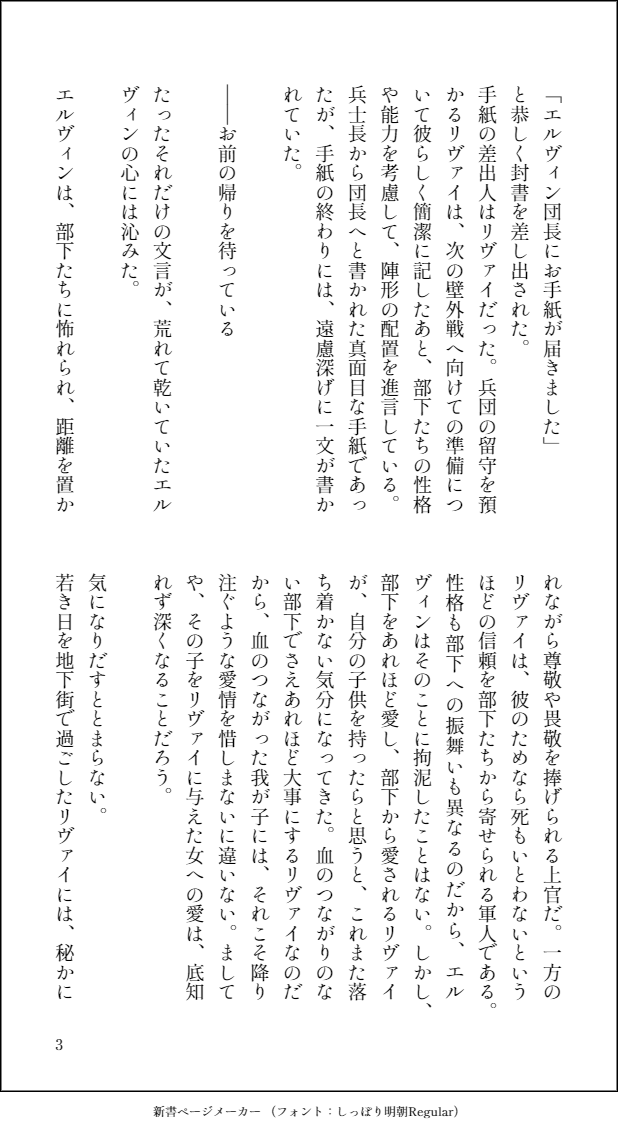 「エルヴィン団長にお手紙が届きました」
と恭しく封書を差し出された。
手紙の差出人はリヴァイだった。兵団の留守を預
かるリヴァイは、次の壁外戦へ向けての準備につ
いて彼らしく簡潔に記したあと、部下たちの性格
や能力を考慮して、陣形の配置を進言している。
兵士長から団長へと書かれた真面目な手紙であっ
たが、手紙の終わりには、遠慮深げに一文が書か
れていた。
――お前の帰りを待っている
たったそれだけの文言が、荒れて乾いていたエル
ヴィンの心には沁みた。
エルヴィンは、部下たちに怖れられ、距離を置か
れながら尊敬や畏敬を捧げられる上官だ。一方の
リヴァイは、彼のためなら死もいとわないという
ほどの信頼を部下たちから寄せられる軍人である。
性格も部下への振舞いも異なるのだから、エル
ヴィンはそのことに拘泥したことはない。しかし、
部下をあれほど愛し、部下から愛されるリヴァイ
が、自分の子供を持ったらと思うと、これまた落
ち着かない気分になってきた。血のつながりのな
い部下でさえあれほど大事にするリヴァイなのだ
から、血のつながった我が子には、それこそ降り
注ぐような愛情を惜しまないに違いない。まして
や、その子をリヴァイに与えた女への愛は、底知
れず深くなることだろう。
気になりだすととまらない。
若き日を地下街で過ごしたリヴァイには、秘かに
3
新書ページメーカー（フォント：しっぽり明朝Regular）